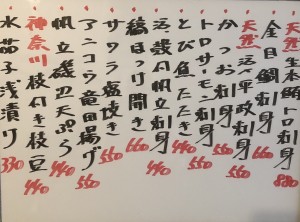 天然 生本鮪トロ刺身 880
金目鯛刺身 550
天然 活〆平政刺身 550
かつお刺身 550
トロサーモン刺身 550
とび魚たたき 440
刺身 440
縞ほっけ開き 660
サワラ塩焼き 550
アンコウ竜田揚げ 550
帆立磯辺天ぷら 440
神奈川 枝付き枝豆 440
水茄子浅漬け 330